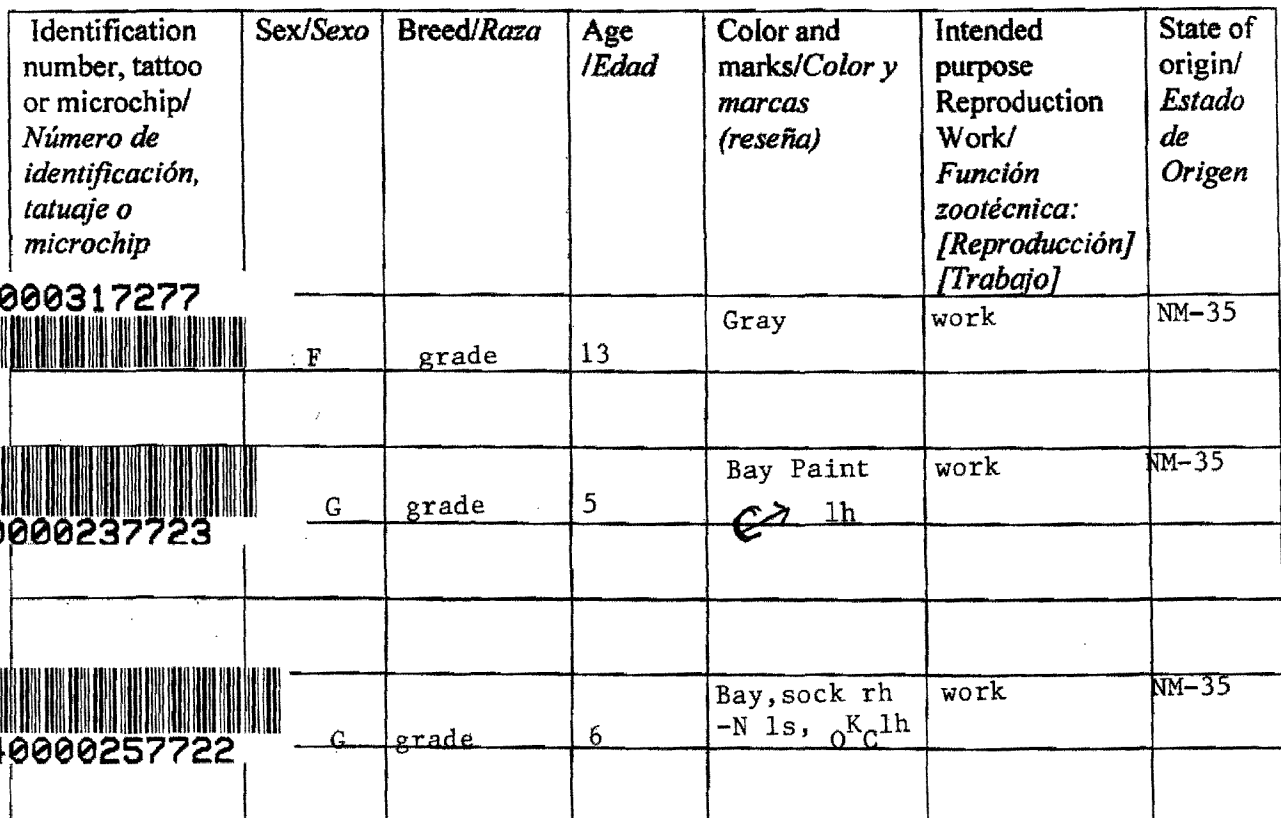 Identification
number, tattoo
or microchip/
Número de
identificación,
tatuaje o
microchip
Sex/Sexo
Breed/Raza
Age
/Edad
Color and
marks/Color y
marcas
(reseña)
Intended
purpose
Reproduction
Work/
Función
zootécnica:
[Reproducción]
[Trabajo]
State of
origin/
Estado
de
Origen
000317277
F
grade
13
Gray
work
NM-35
G
grade
5
Bay Paint
lh
work
NM-35
0000237723
G
grade
6
Bay,sock rh
-N ls, OKC lh
work
NM-35
40000257722